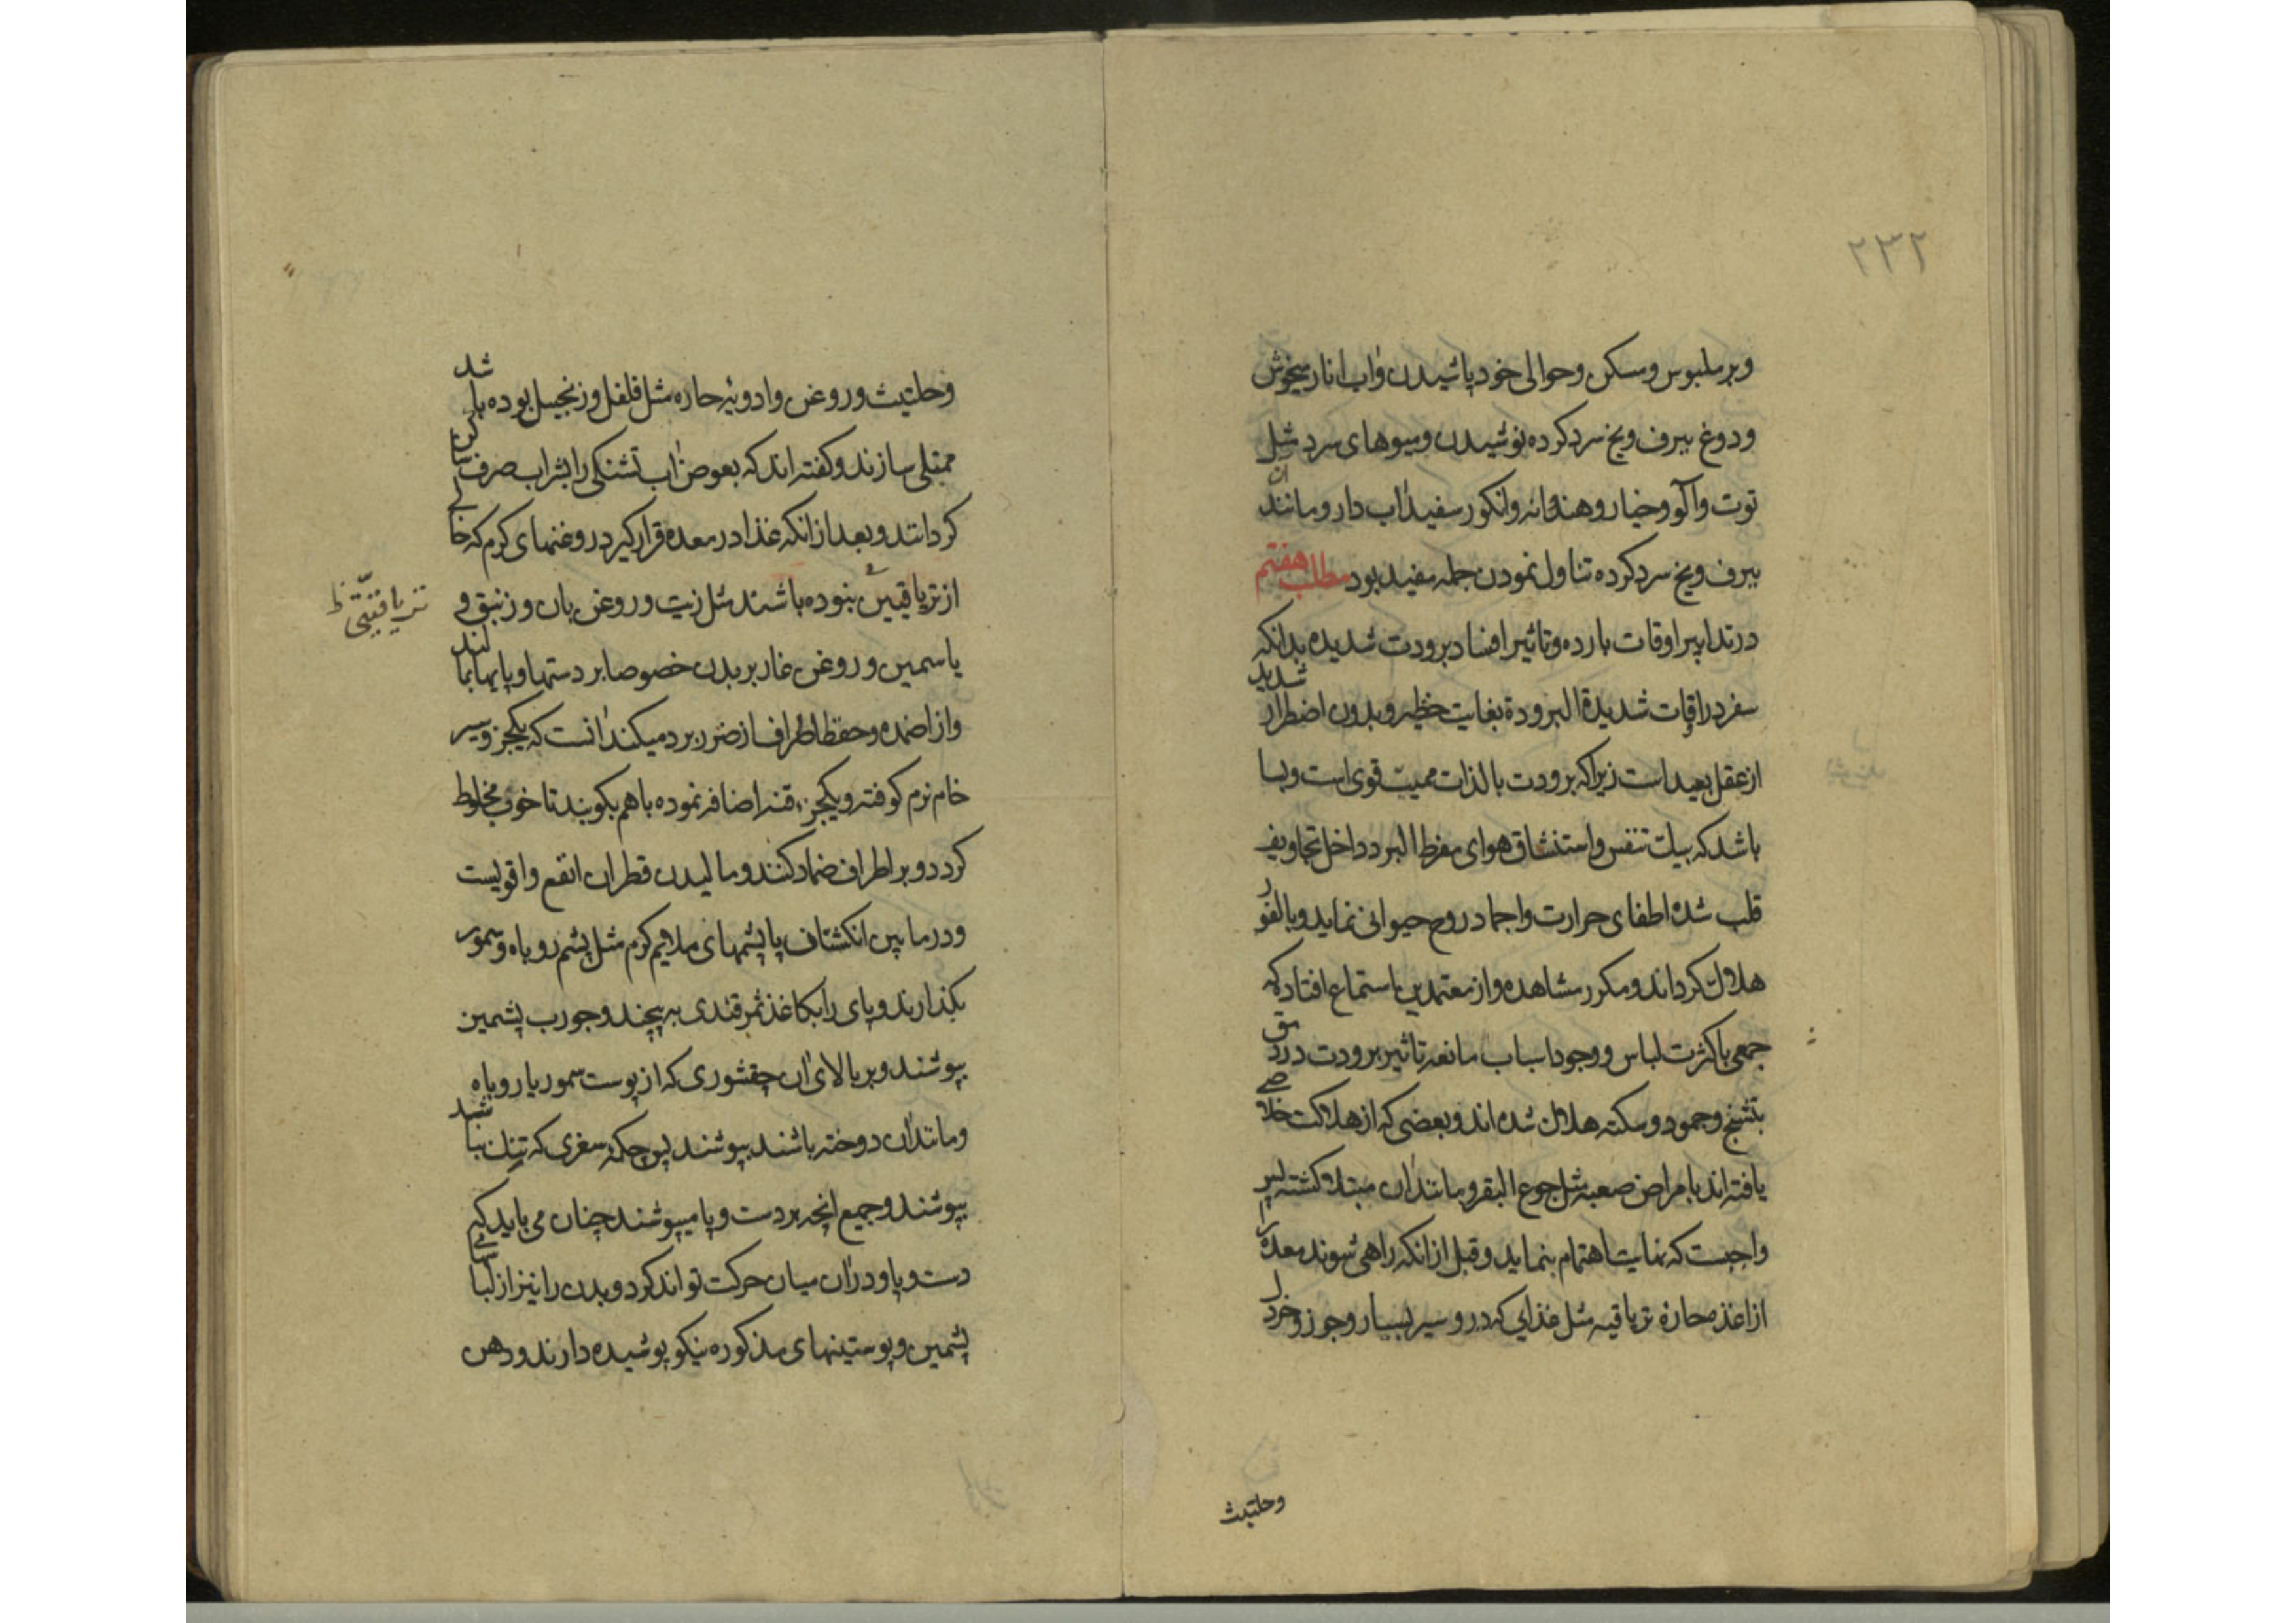 ۲۳۲
و بر ملبوس و مسکن و حوالی خود پاشیدن و اب انار میخوش
و دوغ ببرف و یخ سرد کرده نوشیدن و میوهای سرد مثل
توت و آلو و خیار و هندوانه و انکور سفید اب دار و مانند ان
ببرف و یخ سرد کرده تناول نمودن جمله مفید بود مطلب هفتم
در تدابیر اوقات بارده و تاثیر افساد برودت شدیده بدانکه
سفر در اوقات شدیدة البرودة بغایت خطیر و بدون اضطرار شدید
از عقل بعید است زیرا که برودت بالذات ممیت قوی است و بسا
باشد که بیک تنفس و استنشاق هوای مفرط البرد داخل تجاویف
قلب شده اطفای حرارت و اجماد روح حیوانی نماید و بالفور
هلاک کرداند و مکرر مشاهده و از معتمدین باستماع افتاد که
جمعی با کثرت لباس و وجود اسباب مانعه تاثیر برودت در دمق
بتشنج و جمود و سکته هلاک شده اند و بعضی که از هلاکت خلاصی
یافته اند بامراض صعبه مثل جوع البقر و مانند ان مبتلا کشته پس
واجبست که نهایت اهتمام بنماید و قبل از انکه راهی شوند معده را
از اغذیه حاره تریاقیه مثل غذایی که در و سیر بسیار و جوز و خردل
وحلتیث
وحلتیث و روغن و ادویه حاره مثل فلفل و زنجبیل بوده باشد
ممتلی سازند و کفته اند که بعوض اب تشنکی را بشراب صرف ساکن
کردانند و بعد از انکه غذا در معده قرار کیرد روغنهای کرم که خالی
از تریاقیین نبوده باشند مثل زیت و روغن بان و زنبق و
تریاقیتی ظ
یاسمین و روغن غار بر بدن خصوصا بر دستها و پایها بمالند
و از اضمده و حفظ اطراف از ضرر برد میکند انست که یکجزو سیر
خام نرم کوفته و یکجزء قنه اضافه نموده باهم بکوبند تا خوب مخلوط
کردد و بر اطراف ضماد کنند و مالیدن قطران انفع و اقویست
و در مابین انکشتان پا پشمهای ملایم کرم مثل پشم روباه و سمور
بکذارند و پای را بکاغذ ثمرقندی بپیچند و جورب پشمین
بپوشند و بر بالای ان چقشوری که از پوست سمور یا روباه
و مانند ان دوخته باشند بپوشند پس چکمه سغری که تنک نباشد
بپوشند و جمیع انچه بر دست و پا میپوشند چنان می باید که
دست و پا و در ان میان حرکت تواند کرد و بدن را نیز از لباسهای
پشمین و پوستینهای مذکوره نیکو پوشیده دارند و دهن